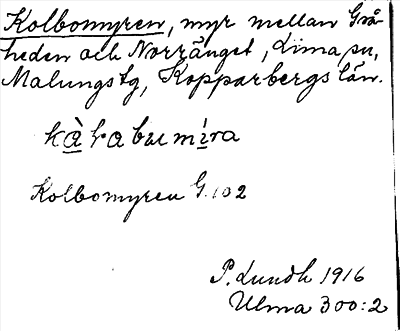 Kolbomyren, myr mellan Grå-
heden och Norränget, Lima sn,
Malungs tg, Kopparbergs län.
Kolbomyren G. 102
P. Lundh 1916
Ulma 300:2